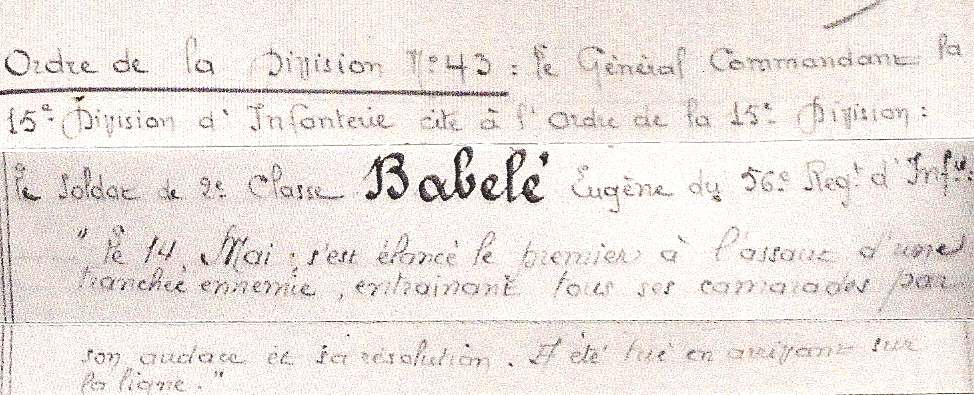 Ordre de la Division N° 43 : le Général Commandant la
15e Division d'Infanterie cite à l'Ordre de la 15e Division :
le soldat de 2e Classe Babelé Eugène du 56e Regt d'Infie :
" le 14 Mai : s'est élancé le premier à l'assaut d'une
tranchée ennemie, entrainant tous ses camarades par
son audace et sa résolution. A été tué en arrivant sur
la ligne. "